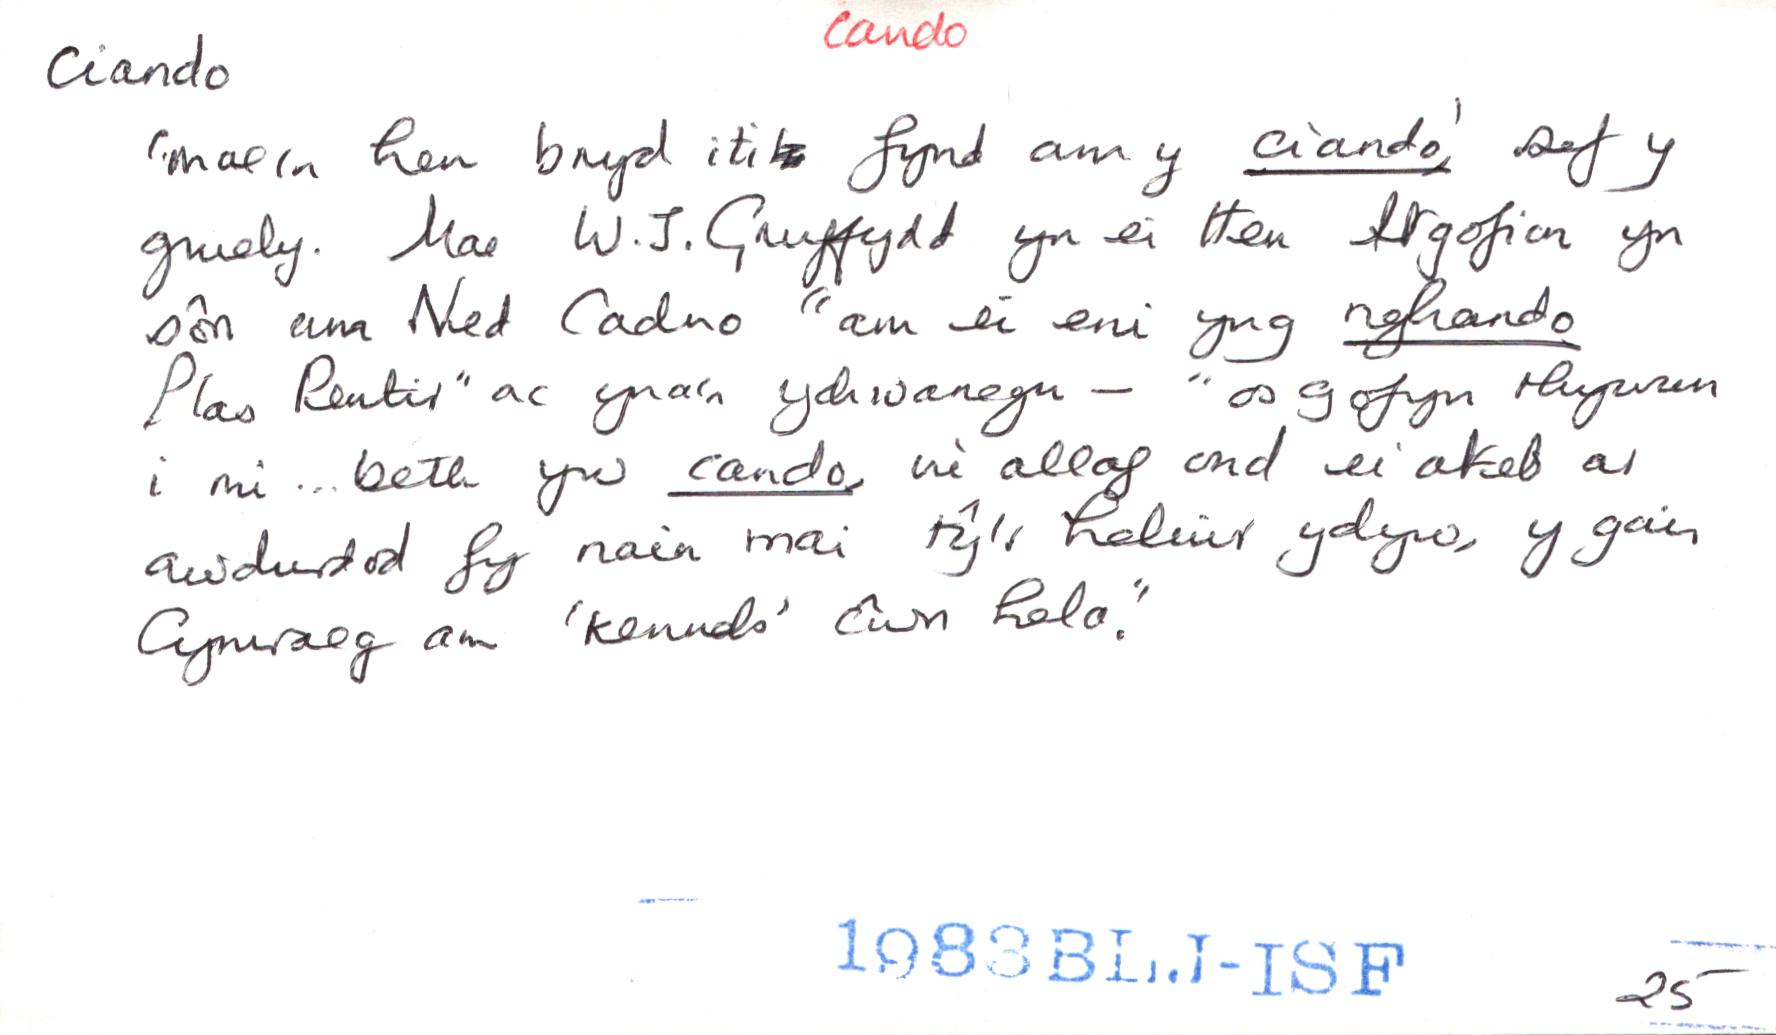 cando
Ciando
'mae'n hen bryd iti fynd am y ciando,' sef y
gwely. Mae W.J. Gruffydd yn ei Hen Atgofion yn
sôn am Ned Cadno "am ei eni yng nghando
Plas Pentir" ac yna'n ychwanegu — "os gofyn rhywun
i mi ... beth yw cando, ni allaf ond ei ateb ar
awdurdod fy nain mai tŷ'r helwr ydyw, y gair
Cymraeg am 'kennels' cŵn hela."
1983 BLJ-ISF
25